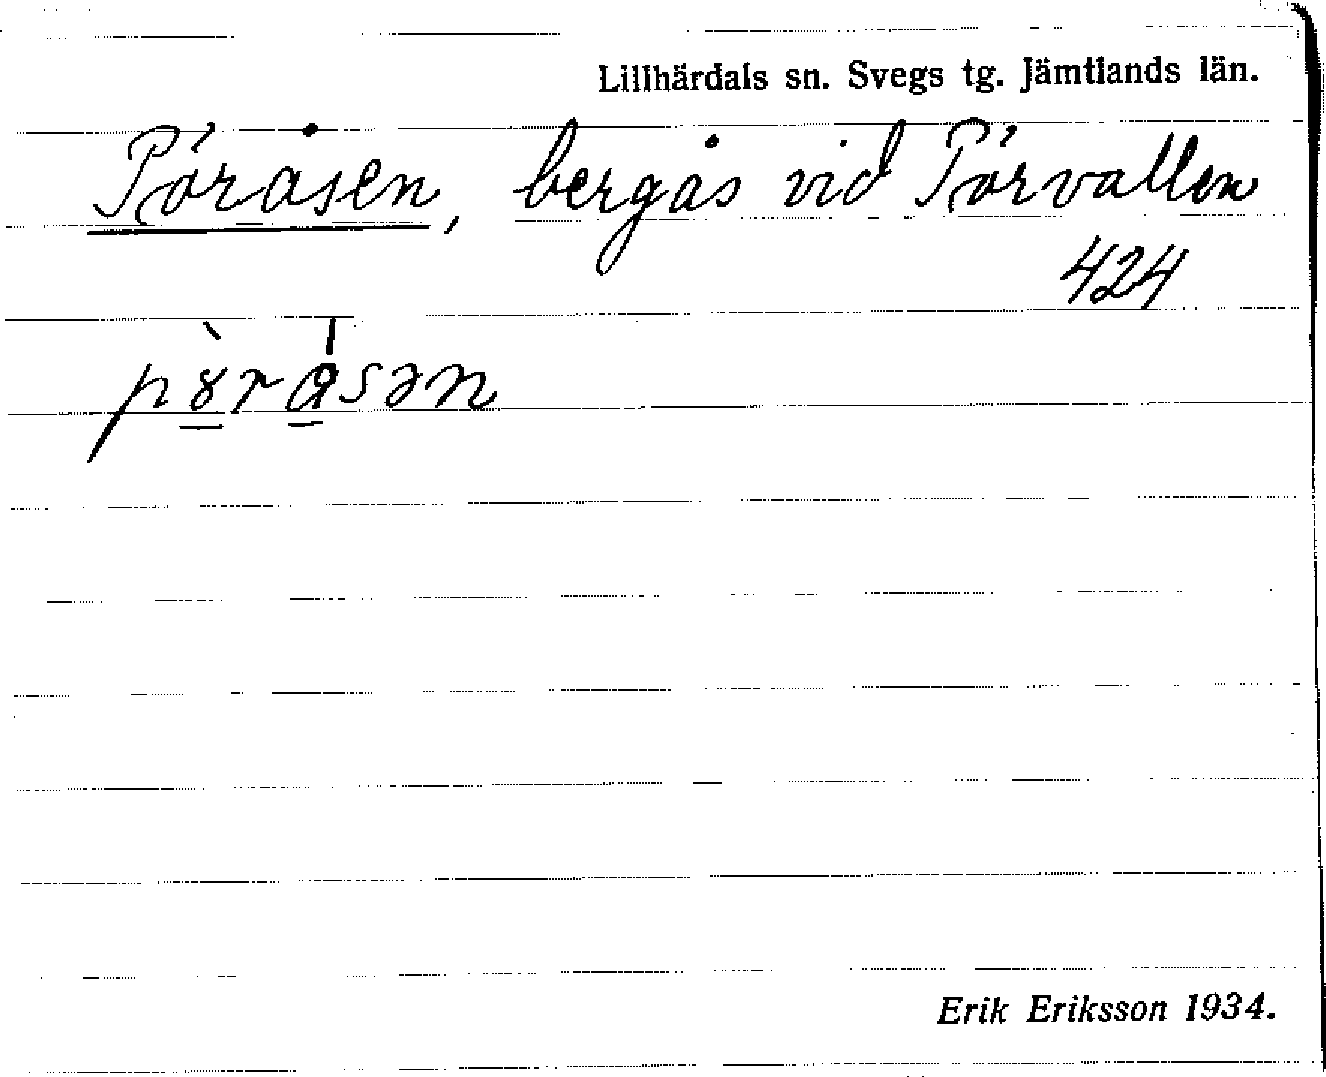 Lillhärdals sn. Svegs tg. Jämtlands län.
Pöråsen, bergås vid Pörvallen
424
pöråsən
Erik Eriksson 1934.